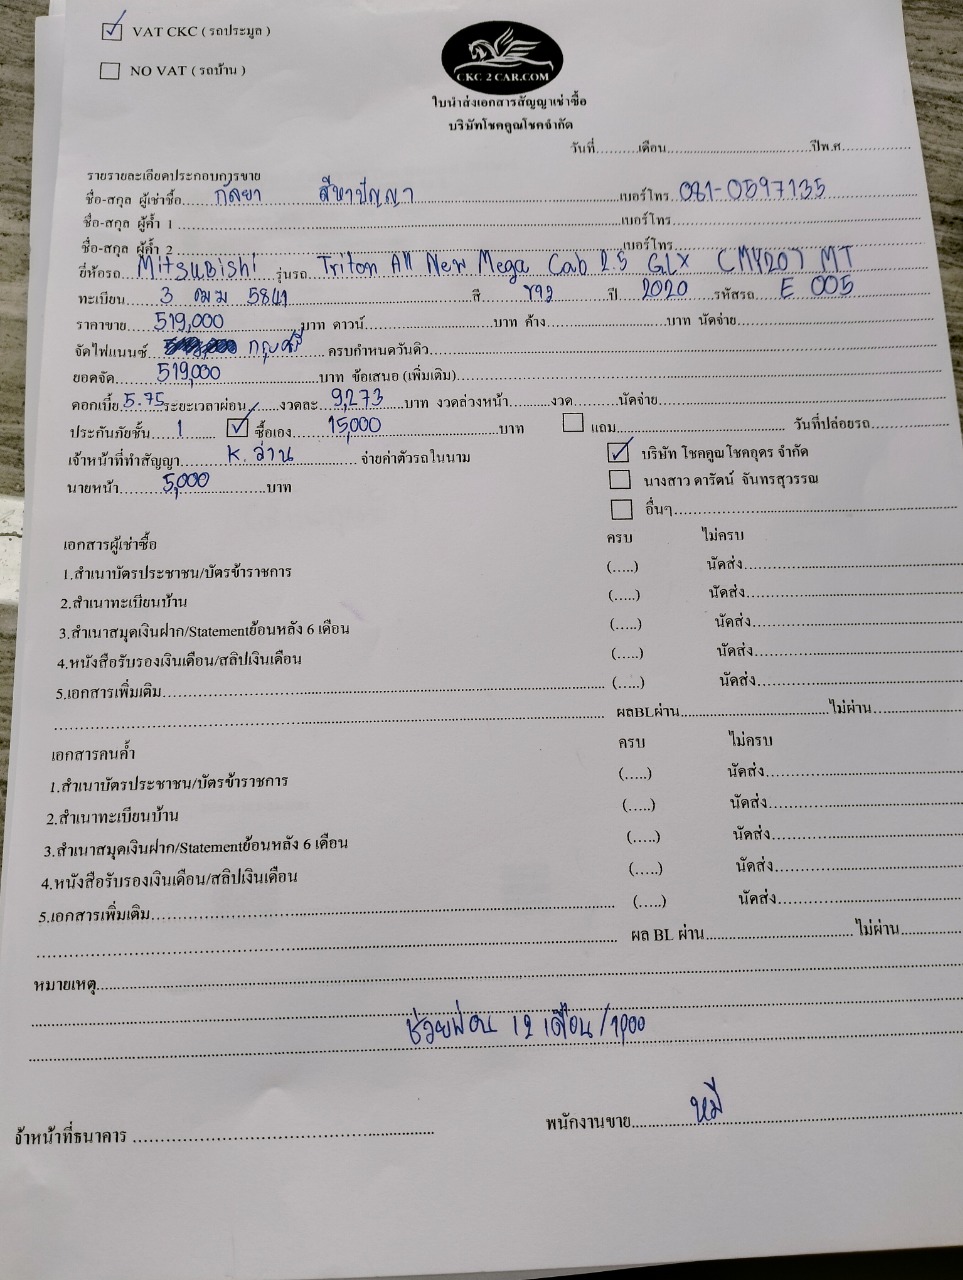 VAT CKC ( รถประมูล )
NO VAT ( รถบ้าน )
CKC 2 CAR.COM
ใบนำส่งเอกสารสัญญาเช่าซื้อ
บริษัทโชคคูณโชคจำกัด
วันที่..........เดือน....................................ปีพ.ศ.................
รายรายละเอียดประกอบการขาย
ชื่อ-สกุล ผู้เช่าซื้อ...กัลยา สีขาปัญญา...เบอร์โทร. 081-0597135
ชื่อ-สกุล ผู้ค้ำ 1 ..........เบอร์โทร..........
ชื่อ-สกุล ผู้ค้ำ 2 ..........เบอร์โทร..........
ยี่ห้อรถ...Mitsubishi...รุ่นรถ...Triton All New Mega Cab 2.5 GLX MT
ทะเบียน...3 ฒฒ...สี...ขาว...ปี...2020...รหัสรถ...E 005
ราคาขาย...519,000...บาท ดาวน์..........บาท ค้าง..........บาท นัดจ่าย..........
จัดไฟแนนซ์...กรุงศรี...ครบกำหนดวันดิว..........
ยอดจัด...519,000...บาท ข้อเสนอ (เพิ่มเติม)..........
ดอกเบี้ย 5.75 ระยะเวลาผ่อน........งวดละ...9,273...บาท งวดล่วงหน้า..........งวด..........นัดจ่าย..........
ประกันภัยชั้น...1...ซื้อเอง...15,000...บาท แถม..........วันที่ปล่อยรถ..........
เจ้าหน้าที่ทำสัญญา...K. ล่าน...จ่ายค่าตัวรถในนาม บริษัท โชคคูณ โชคอุดร จำกัด
นายหน้า...5,000...บาท นางสาว ดารัตน์ จันทรสุวรรณ
อื่นๆ..........
เอกสารผู้เช่าซื้อ ครบ ไม่ครบ
1.สำเนาบัตรประชาชน/บัตรข้าราชการ (.....) นัดส่ง..........
2.สำเนาทะเบียนบ้าน (.....) นัดส่ง..........
3.สำเนาสมุดเงินฝาก/Statementย้อนหลัง 6 เดือน (.....) นัดส่ง..........
4.หนังสือรับรองเงินเดือน/สลิปเงินเดือน (.....) นัดส่ง..........
5.เอกสารเพิ่มเติม.......... (.....) นัดส่ง..........
.......... ผลBLผ่าน..........ไม่ผ่าน..........
เอกสารคนค้ำ ครบ ไม่ครบ
1.สำเนาบัตรประชาชน/บัตรข้าราชการ (.....) นัดส่ง..........
2.สำเนาทะเบียนบ้าน (.....) นัดส่ง..........
3.สำเนาสมุดเงินฝาก/Statementย้อนหลัง 6 เดือน (.....) นัดส่ง..........
4.หนังสือรับรองเงินเดือน/สลิปเงินเดือน (.....) นัดส่ง..........
5.เอกสารเพิ่มเติม.......... (.....) นัดส่ง..........
.......... ผล BL ผ่าน..........ไม่ผ่าน..........
หมายเหตุ..........
ช่วยผ่อน 12 เดือน /1,000
จ้าหน้าที่ธนาคาร .......... พนักงานขาย...หมี